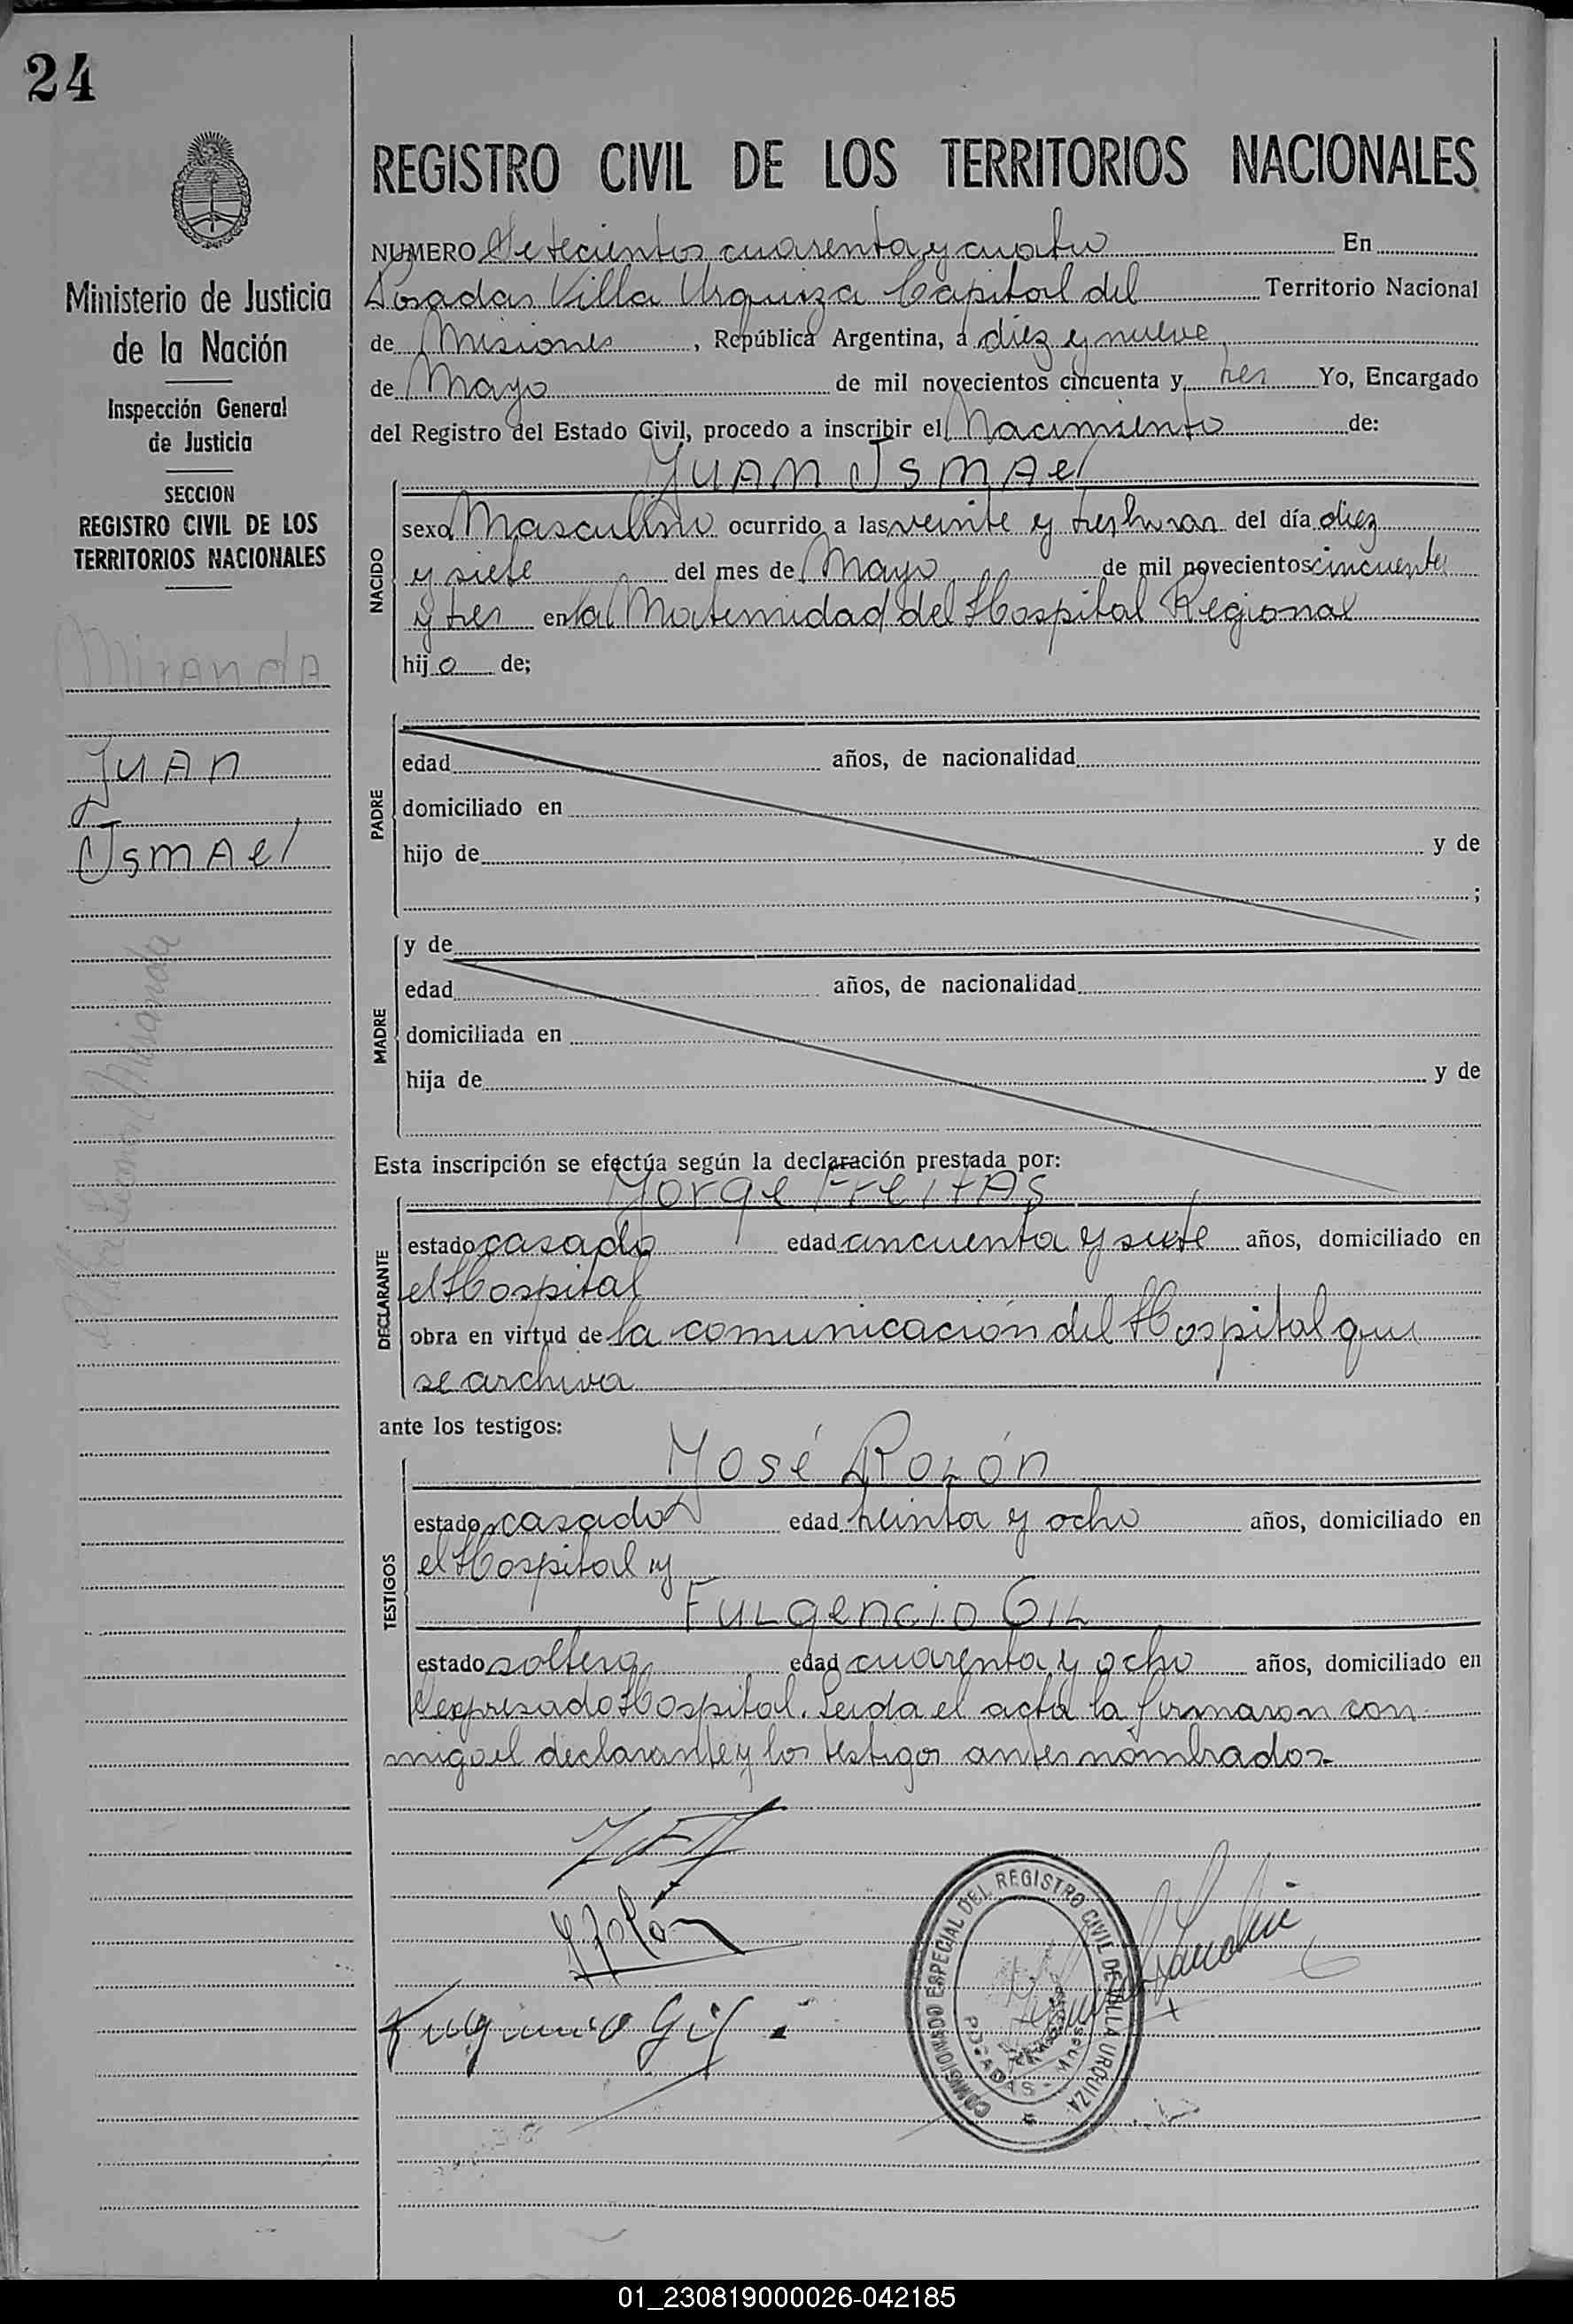 24
Ministerio de Justicia
de la Nación
Inspección General
de Justicia
SECCION
REGISTRO CIVIL DE LOS
TERRITORIOS NACIONALES
Miranda
Juan
Ismael
Leonor Miranda
REGISTRO CIVIL DE LOS TERRITORIOS NACIONALES
NUMERO Setecientos cuarenta y cuatro En
Posadas Villa Urquiza Capital del Territorio Nacional
de Misiones, República Argentina, a diez y nueve
de Mayo de mil novecientos cincuenta y tres Yo, Encargado
del Registro del Estado Civil, procedo a inscribir el Nacimiento de:
Juan Ismael
NACIDO
sexo Masculino ocurrido a las veinte y tres horas del día diez
y siete del mes de Mayo de mil novecientos cincuenta
y tres en la Maternidad del Hospital Regional
hijo de;
PADRE
edad años, de nacionalidad
domiciliado en
hijo de y de
;
MADRE
y de
edad años, de nacionalidad
domiciliada en
hija de y de
Esta inscripción se efectúa según la declaración prestada por:
Jorge Freitas
DECLARANTE
estado casado edad cincuenta y siete años, domiciliado en
el Hospital
obra en virtud de la comunicación del Hospital que
se archiva
ante los testigos:
José Rolón
TESTIGOS
estado casado edad treinta y ocho años, domiciliado en
el Hospital y
Fulgencio Gil
estado soltero edad cuarenta y ocho años, domiciliado en
el expresado Hospital. Leida el acta la firmaron con
migo el declarante y los testigos antes nombrados
JRolón
Fulgencio Gil
COMISIONADO ESPECIAL DEL REGISTRO CIVIL DE VILLA URQUIZA
POSADAS
01_230819000026-042185